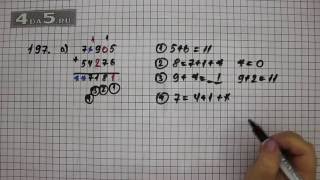 4DA5.RU
197. а)
1 1
7*905
+ 54276
*47181
④③②①
① 5+6=11
② 8=7+1+* *=0
③ 9+*=_1 9+2=11
④ 7=4+1+*